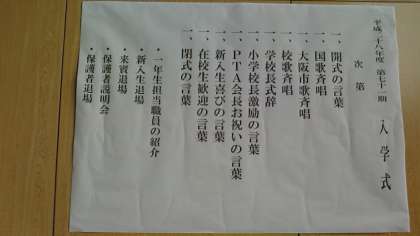 平成二十八年度 第七十一期 入学式
次第
一、開式の言葉
一、国歌斉唱
一、大阪市歌斉唱
一、校歌斉唱
一、学校長式辞
一、小学校長激励の言葉
一、PTA会長お祝いの言葉
一、新入生喜びの言葉
一、在校生歓迎の言葉
一、閉式の言葉
・一年生担当職員の紹介
・新入生退場
・来賓退場
・保護者説明会
・保護者退場